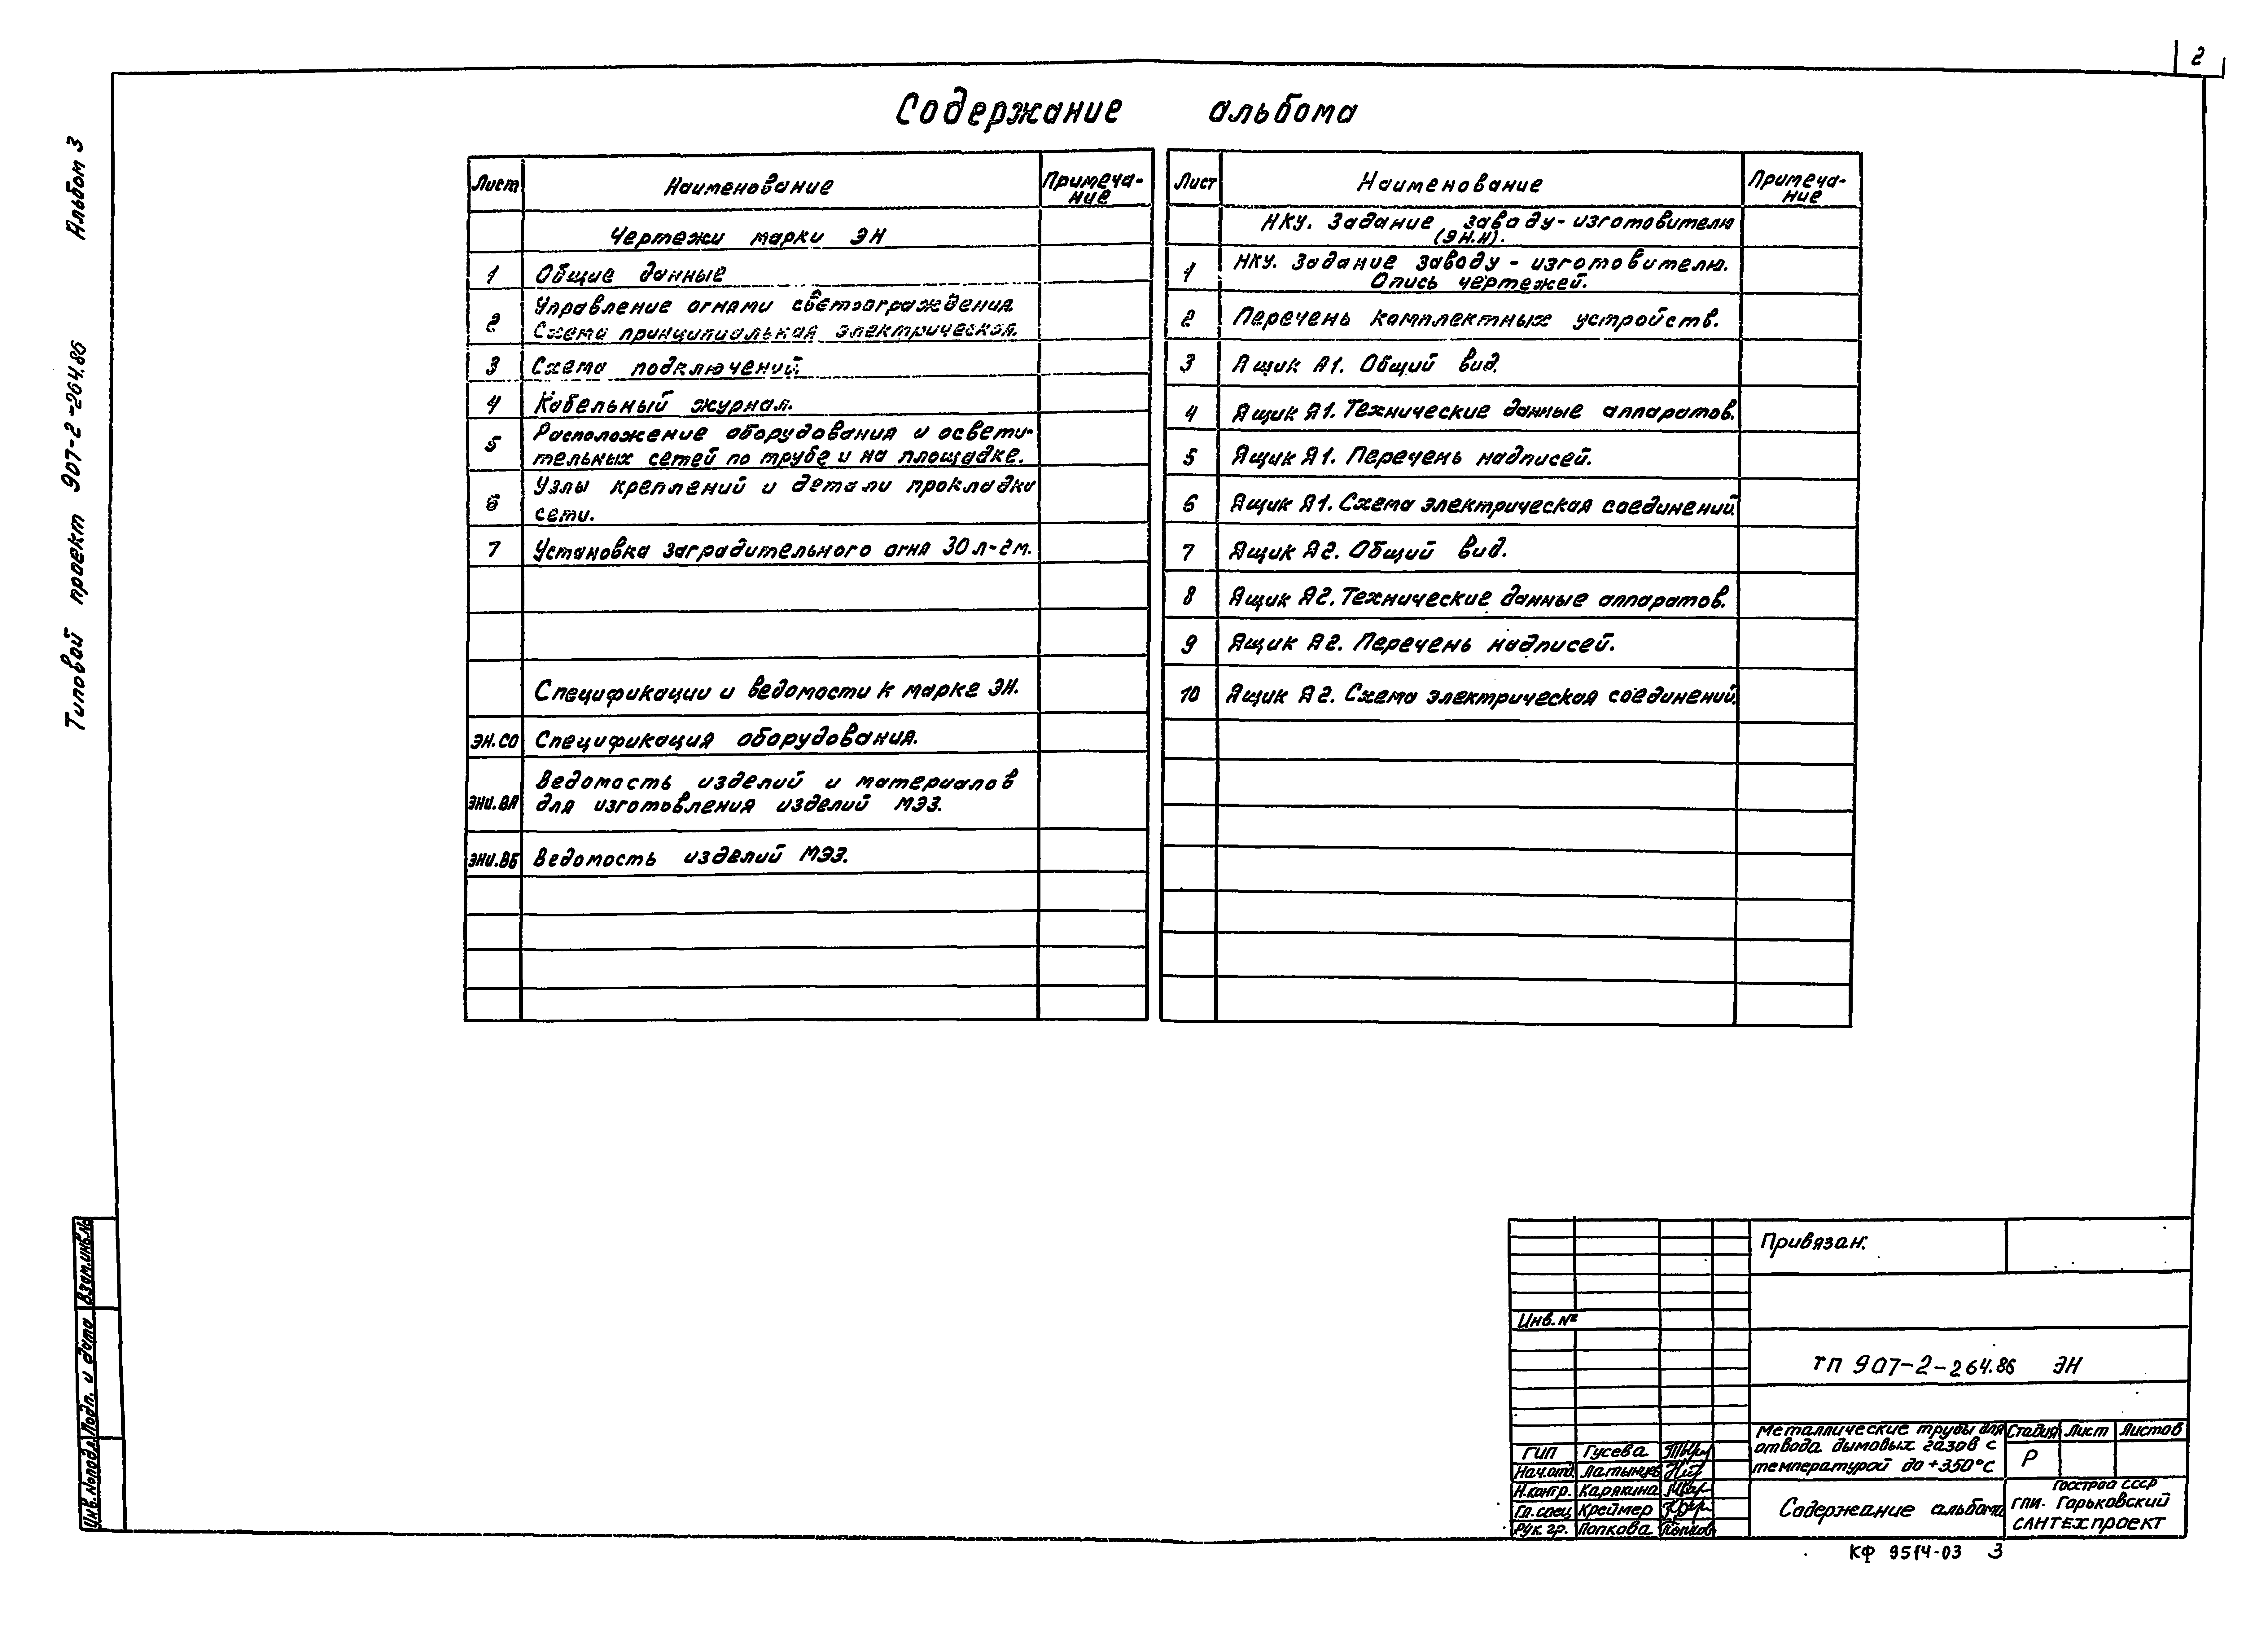 2
Альбом 3
Типовой проект 907-2-264.86
Содержание альбома
Лист Наименование Примеча-
ние
Чертежи марки ЭН
1 Общие данные
2 Управление огнями светоограждения.
Схема принципиальная электрическая.
3 Схема подключений.
4 Кабельный журнал.
5 Расположение оборудования и освети-
тельных сетей по трубе и на площадке.
6 Узлы креплений и детали прокладки
сети.
7 Установка заградительного огня ЗОЛ-2м.
Спецификации и ведомости к марке ЭН.
ЭН.СО Спецификация оборудования.
ЭНИ.ВА Ведомость изделий и материалов
для изготовления изделий МЭЗ.
ЭНИ.ВБ Ведомость изделий МЭЗ.
Лист Наименование Примеча-
ние
НКУ. Задание заводу-изготовителю
(ЭН.Н).
1 НКУ. Задание заводу - изготовителю.
Опись чертежей.
2 Перечень комплектных устройств.
3 Ящик Я1. Общий вид.
4 Ящик Я1. Технические данные аппаратов.
5 Ящик Я1. Перечень надписей.
6 Ящик Я1. Схема электрическая соединений
7 Ящик Я2. Общий вид.
8 Ящик Я2. Технические данные аппаратов.
9 Ящик Я2. Перечень надписей.
10 Ящик Я2. Схема электрическая соединений.
Взам.инв.№
Подп. и дата
Инв.№подл.
Привязан:
Инв.№
ТП 907-2-264.86 ЭН
Металлические трубы для
отвода дымовых газов с
температурой до +350°С
Стадия Лист Листов
Р
ГИП Гусева
Нач.отд. Латынцев
Н.контр. Карякина
Гл.спец Креймер
Рук. гр. Попкова
Содержание альбома
Госстрой СССР
ГПИ Горьковский
САНТЕХПРОЕКТ
КФ 9514-03 3